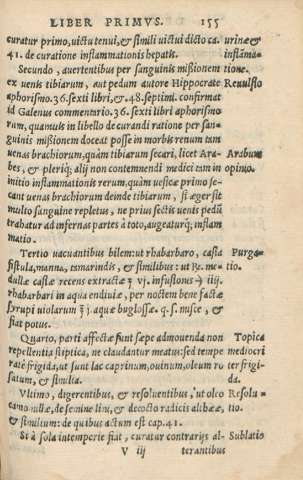 LIBER PRIMVS. 155
curatur primo, victu tenui, & simili victui dicto ca. urinæ &
41. de curatione inflammationis hepatis. inflāma-
Secundo, auertentibus per sanguinis missionem tione.
ex uenis tibiarum, aut pedum autore Hippocrate Reuulsio
aphorismo.36. sexti libri, & .48. septimi. confirmat
id Galenus commentario.36. sexti libri aphorismo
rum, quamuis in libello de curandi ratione per san-
guinis missionem doceat posse in morbis renum tam
uenas brachiorum, quàm tibiarum secari, licet Ara- Arabum
bes, & pleriq; alij non contemnendi medici tam in opinio.
initio inflammationis rerum, quàm uesicæ primo se-
cant uenas brachiorum deinde tibiarum, si æger sit
multo sanguine repletus, ne prius sectis uenis pedū
trahatur ad infernas partes à toto, augeaturq́; inflam
matio.
Tertio uacuantibus bilem: ut rhabarbaro, casia Purga-
fistula, manna, tamarindis, & similibus: ut Re. me- tio.
dullæ casiæ recens extractæ ʒ vj. infusionis iiij.
rhabarbari in aqua endiuiæ, per noctem bene factæ
syrupi violarum ℥ j. aquæ buglossæ. q. s. misce, &
fiat potus.
Quarto, parti affectæ sunt sæpe admouenda non Topica
repellentia stiptica, ne claudantur meatus: sed tempe mediocri
ratè frigida, ut sunt lac caprinum, ouinum, oleum ro ter frigi-
satum, & similia. da.
Vltimo, digerentibus, & resoluentibus, ut oleo Resolu-
camomillæ, de semine lini, & decocto radicis althææ, tio.
& similium: de quibus actum est cap.41.
Si à sola intemperie fiat, curatur contrarijs al- Sublatio
V iij terantibus